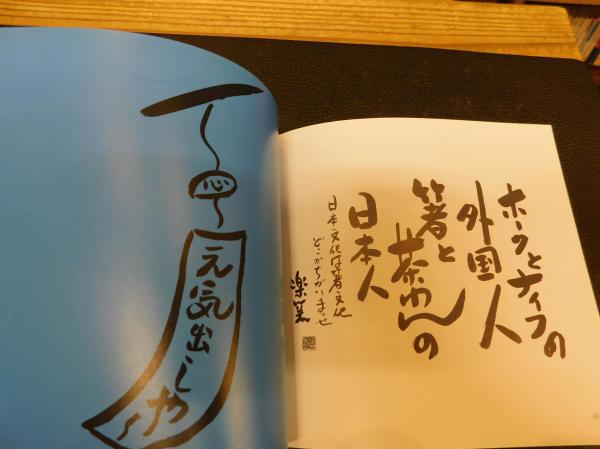 ホークとナイフの
外国人
箸と
茶わんの
日本人
日本文化は箸文化
どこかちがいまっせ
楽篤
心
元気出しや〜